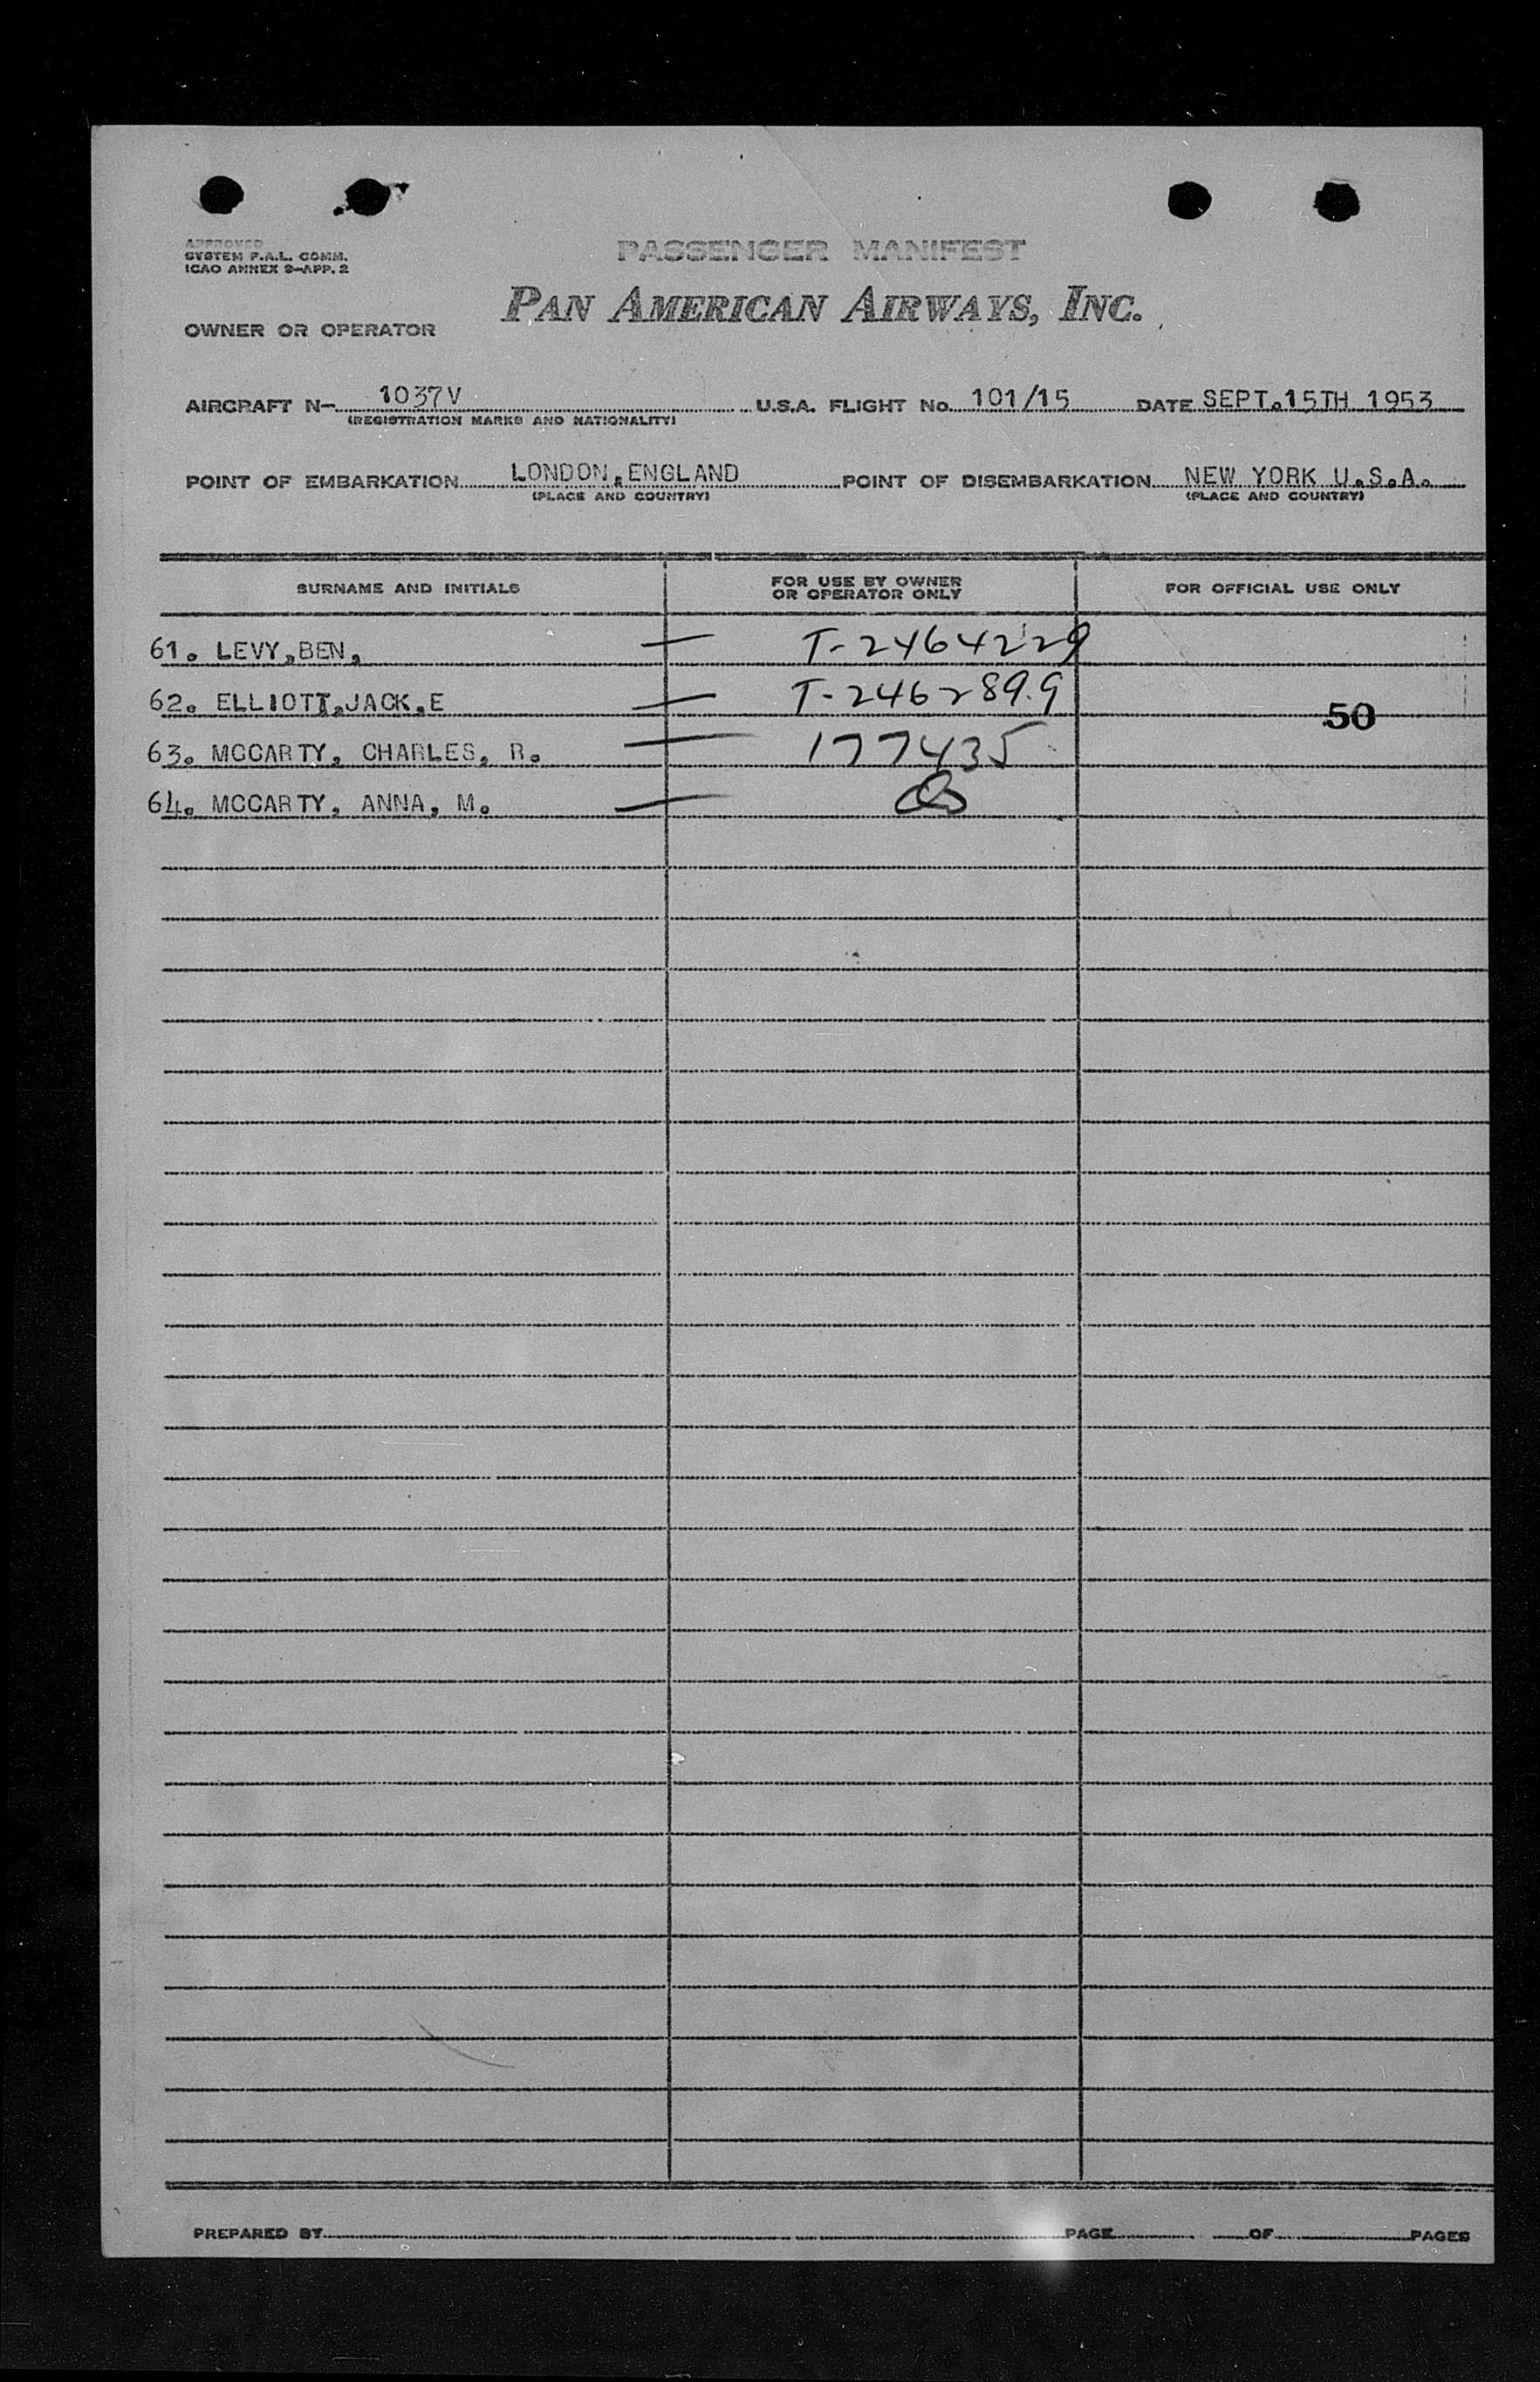 APPROVED
SYSTEM F.A.L. COMM.
ICAO ANNEX 9-APP. 2
PASSENGER MANIFEST
PAN AMERICAN AIRWAYS, INC.
OWNER OR OPERATOR
AIRCRAFT N- 1037V U.S.A. FLIGHT No. 101/15 DATE SEPT.15TH 1953
(REGISTRATION MARKS AND NATIONALITY)
POINT OF EMBARKATION LONDON,ENGLAND POINT OF DISEMBARKATION NEW YORK U.S.A.
(PLACE AND COUNTRY) (PLACE AND COUNTRY)
SURNAME AND INITIALS FOR USE BY OWNER OR OPERATOR ONLY FOR OFFICIAL USE ONLY
61. LEVY,BEN, — T-2464229
62. ELLIOTT,JACK,E — T-2462899
50
63. MCCARTY, CHARLES, R. — 177435
64. MCCARTY, ANNA, M. —
PREPARED BY PAGE OF PAGES